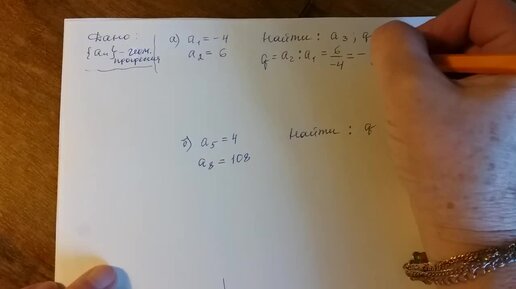 Дано:
{an} - геом. прогрессия
а) a₁ = -4
a₂ = 6
Найти: a₃, q
q = a₂ : a₁ = 6/-4 = -
б) a₅ = 4
a₈ = 108
Найти: q